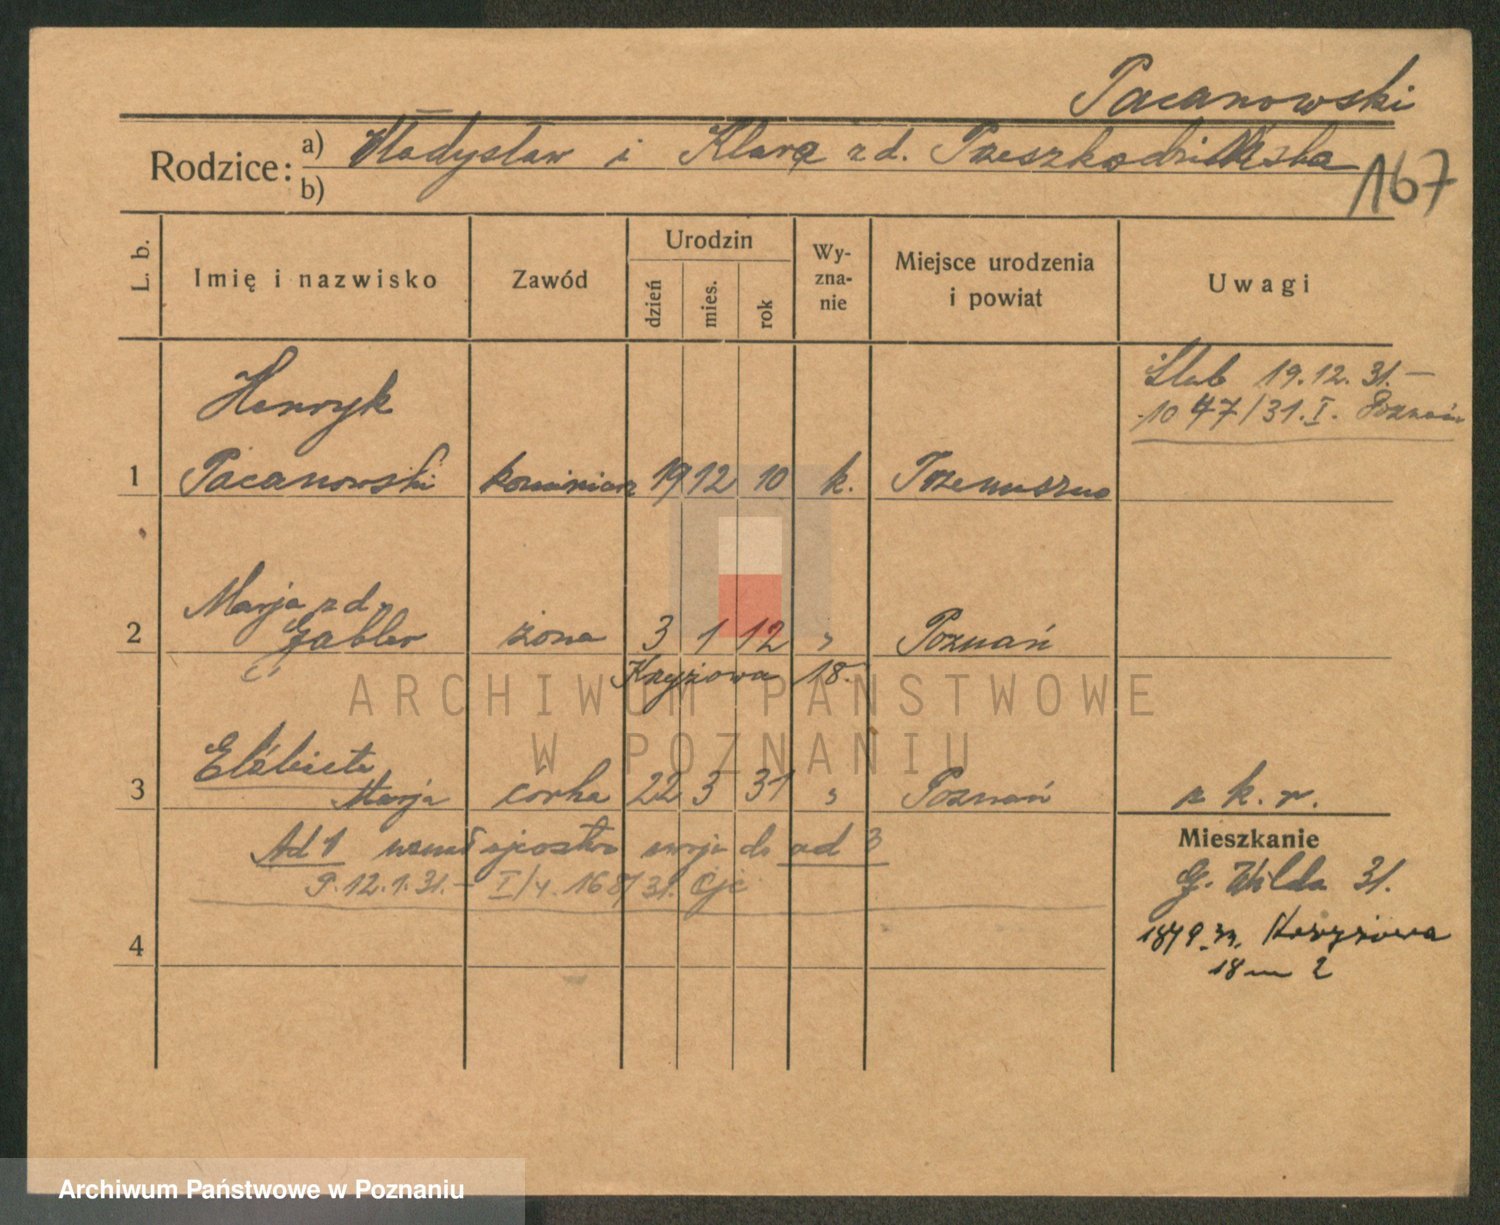 Pacanowski
Rodzice: a) Władysław i Klara zd.
b)
167
L. b.
Imię i nazwisko
Zawód
Urodzin
dzień
mies.
rok
Wy-
zna-
nie
Miejsce urodzenia
i powiat
Uwagi
Ślub 19.12.31.–
1047/31.I. Poznań
Henryk
1 Pacanowski kominiarz 19 12 10 k. Trzemeszno
Marja zd.
2 Gabler żona 3 1 12 " Poznań
Krzyżowa 18.
Elżbieta
3 Marja córka 22 3 31 " Poznań
Ad 1 uznał ojcostwo swoje do ad 3
Mieszkanie
G. Wilda 31.
Krzyżowa
18 m 2
4
ARCHIWUM PAŃSTWOWE
W POZNANIU
Archiwum Państwowe w Poznaniu